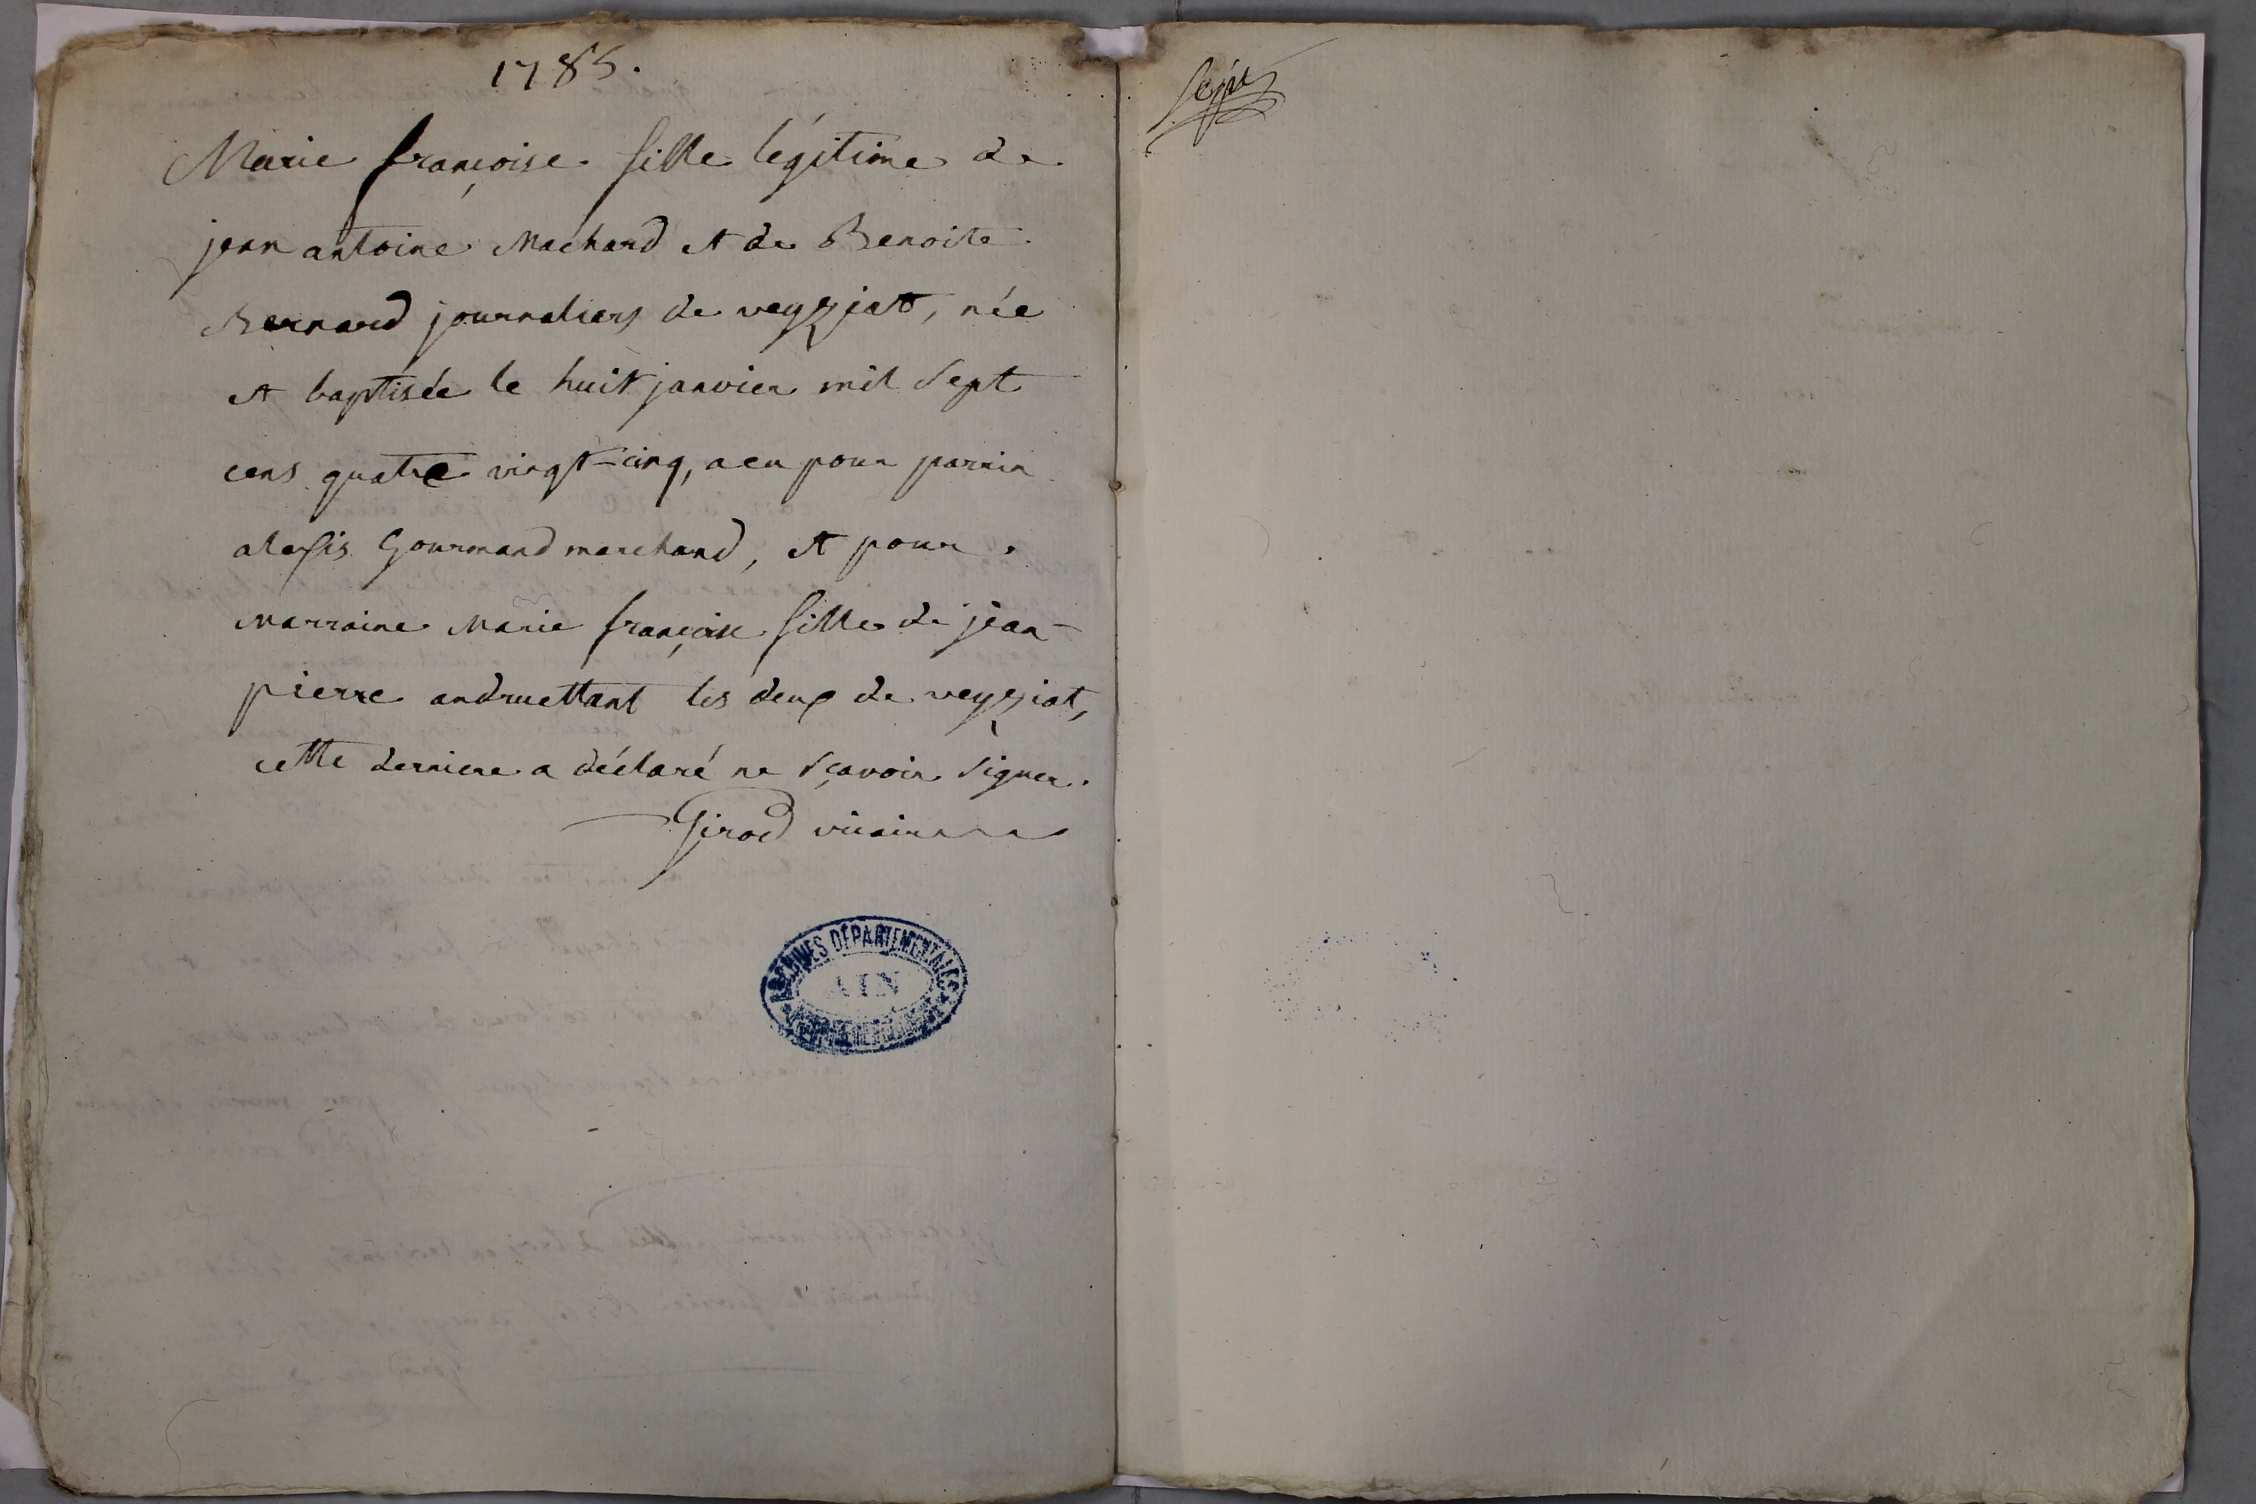 1785.
Marie françoise fille légitime de
jean antoine Machard et de Benoite
Bernard journaliers de veyziat, née
et baptisée le huit janvier mil sept
cens quatre vingt-cinq, a eu pour parrin
alexis Gourmand marchand, et pour
marraine Marie françoise fille de jean-
pierre andruettant les deux de veyziat,
cette derniere a déclaré ne sçavoir signer.
Girod vicaire
ARCHIVES DÉPARTEMENTALES
AIN
sept